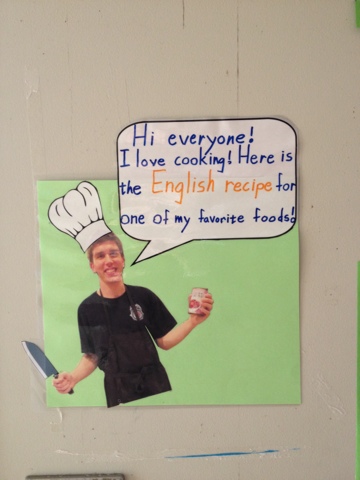 Hi everyone!
I love cooking! Here is
the English recipe for
one of my favorite foods!